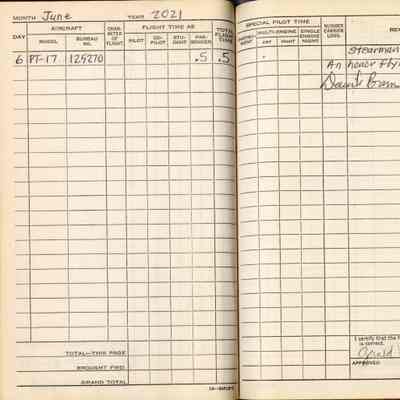 MONTH June YEAR 2021
DAY
AIRCRAFT
MODEL
BUREAU NO.
CHAR-
ACTER
OF
FLIGHT
FLIGHT TIME AS
PILOT
CO-
PILOT
STU-
DENT
PAS-
SENGER
TOTAL
FLIGHT
TIME
6 PT-17 .5 .5
TOTAL—THIS PAGE
BROUGHT FWD.
GRAND TOTAL
SPECIAL PILOT TIME
MULTI-ENGINE
DAY
NIGHT
SINGLE
ENGINE
NIGHT
NUMBER
CARRIER
LDGS.
RE
Stearman
An honor fly
I certify that the f
is correct.
APPROVED